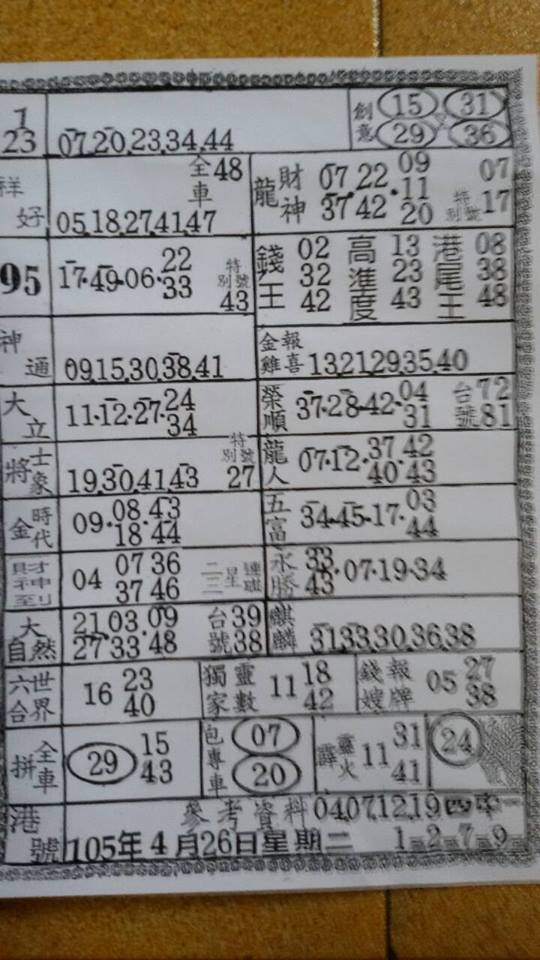 1
23 07.20.23.34.44 創意 15 31
29 36
祥好 05.18.27.41.47 全車48
龍 財神 07 22 09 07
37 42 11 特別號17
20
95 17.49.06.22
33 特別號43
錢王 02 高準度 13 港尾王 08
32 23 38
42 43 48
神通 09.15.30.38.41
金雞報喜 13.21.29.35.40
大立 11.12.27.24
34
榮順 37.28.42.04 台號72
31 81
將士象 19.30.41.43 特別號27
龍人 07.12.37.42
40.43
金時代 09.08.43
18.44
五富 34.45.17.03
44
財神到 04 07 36
37 46 二三星連碰
永勝 33
43.07.19.34
大自然 21.03.09 台號39
27 33 48 38
麒麟 31.33.30.36.38
六合世界 16 23
40
獨家靈數 11 18
42
錢嫂報牌 05 27
38
拼全車 29 15
43
包專車 07
20
霹靈火 11 31
41
24
港號 參考資料04.07.12.19四中一
105年4月26日星期二 1-2-7-9